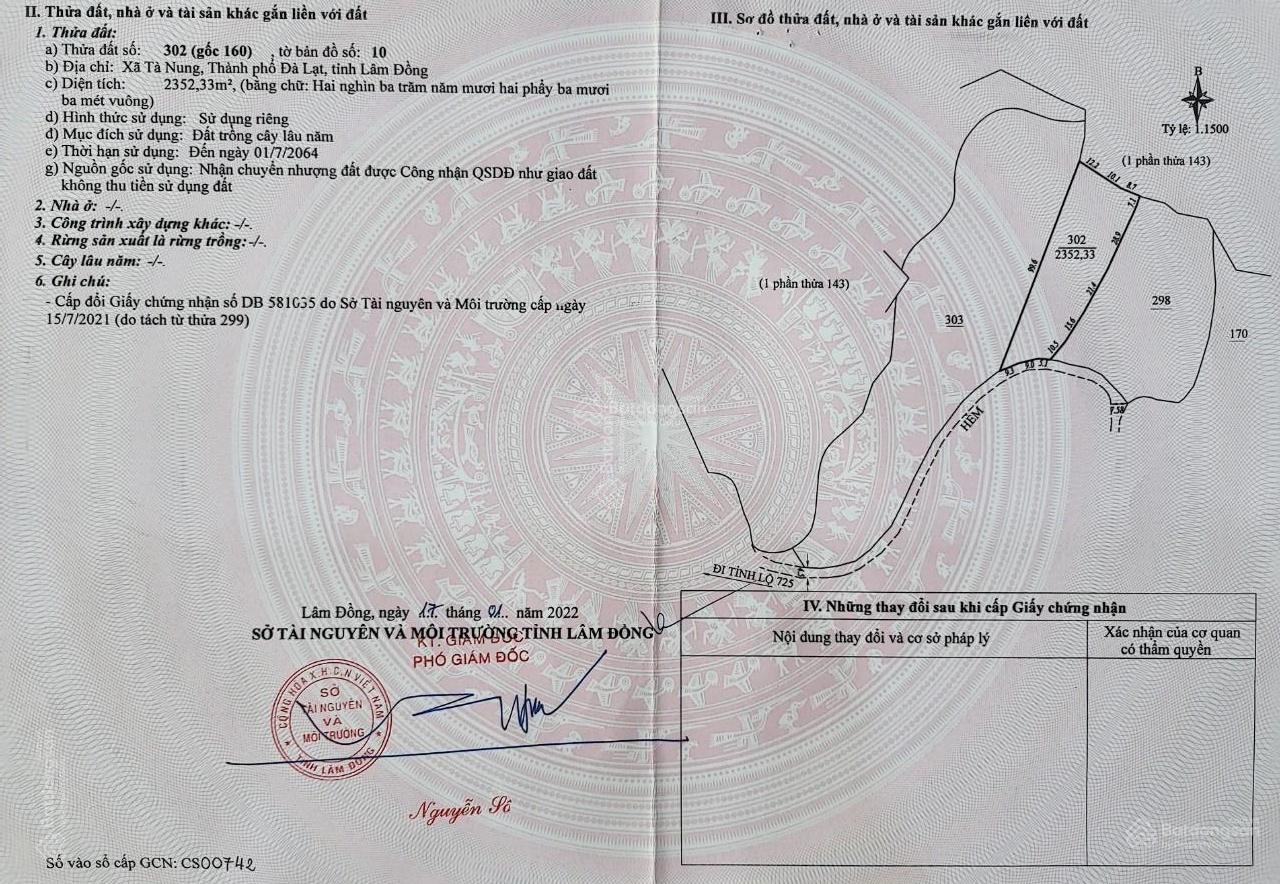 II. Thửa đất, nhà ở và tài sản khác gắn liền với đất
1. Thửa đất:
a) Thửa đất số: 302 (gốc 160) , tờ bản đồ số: 10
b) Địa chỉ: Xã Tà Nung, Thành phố Đà Lạt, tỉnh Lâm Đồng
c) Diện tích: 2352,33m², (bằng chữ: Hai nghìn ba trăm năm mươi hai phẩy ba mươi
ba mét vuông)
d) Hình thức sử dụng: Sử dụng riêng
đ) Mục đích sử dụng: Đất trồng cây lâu năm
e) Thời hạn sử dụng: Đến ngày 01/7/2064
g) Nguồn gốc sử dụng: Nhận chuyển nhượng đất được Công nhận QSDĐ như giao đất
không thu tiền sử dụng đất
2. Nhà ở: -/-.
3. Công trình xây dựng khác: -/-.
4. Rừng sản xuất là rừng trồng: -/-.
5. Cây lâu năm: -/-.
6. Ghi chú:
- Cấp đổi Giấy chứng nhận số DB 581035 do Sở Tài nguyên và Môi trường cấp ngày
15/7/2021 (do tách từ thửa 299)
Lâm Đồng, ngày 17 tháng 01.. năm 2022
SỞ TÀI NGUYÊN VÀ MÔI TRƯỜNG TỈNH LÂM ĐỒNG
KT. GIÁM ĐỐC
PHÓ GIÁM ĐỐC
CỘNG HÒA X.H.C.N VIỆT NAM
SỞ
TÀI NGUYÊN
VÀ
MÔI TRƯỜNG
TỈNH LÂM ĐỒNG
Nguyễn Sô
Số vào sổ cấp GCN: CS00742
III. Sơ đồ thửa đất, nhà ở và tài sản khác gắn liền với đất
B
Tỷ lệ: 1.1500
(1 phần thửa 143)
12.2
10.1
8.7
7.1
302
2352,33
28.9
99.6
(1 phần thửa 143)
21.4
298
303
13.6
170
10.5
9.3
9.0
5.1
7.58
HẺM
ĐI TỈNH LỘ 725
IV. Những thay đổi sau khi cấp Giấy chứng nhận
Nội dung thay đổi và cơ sở pháp lý
Xác nhận của cơ quan
có thẩm quyền
Batdongsan
Batdongsan